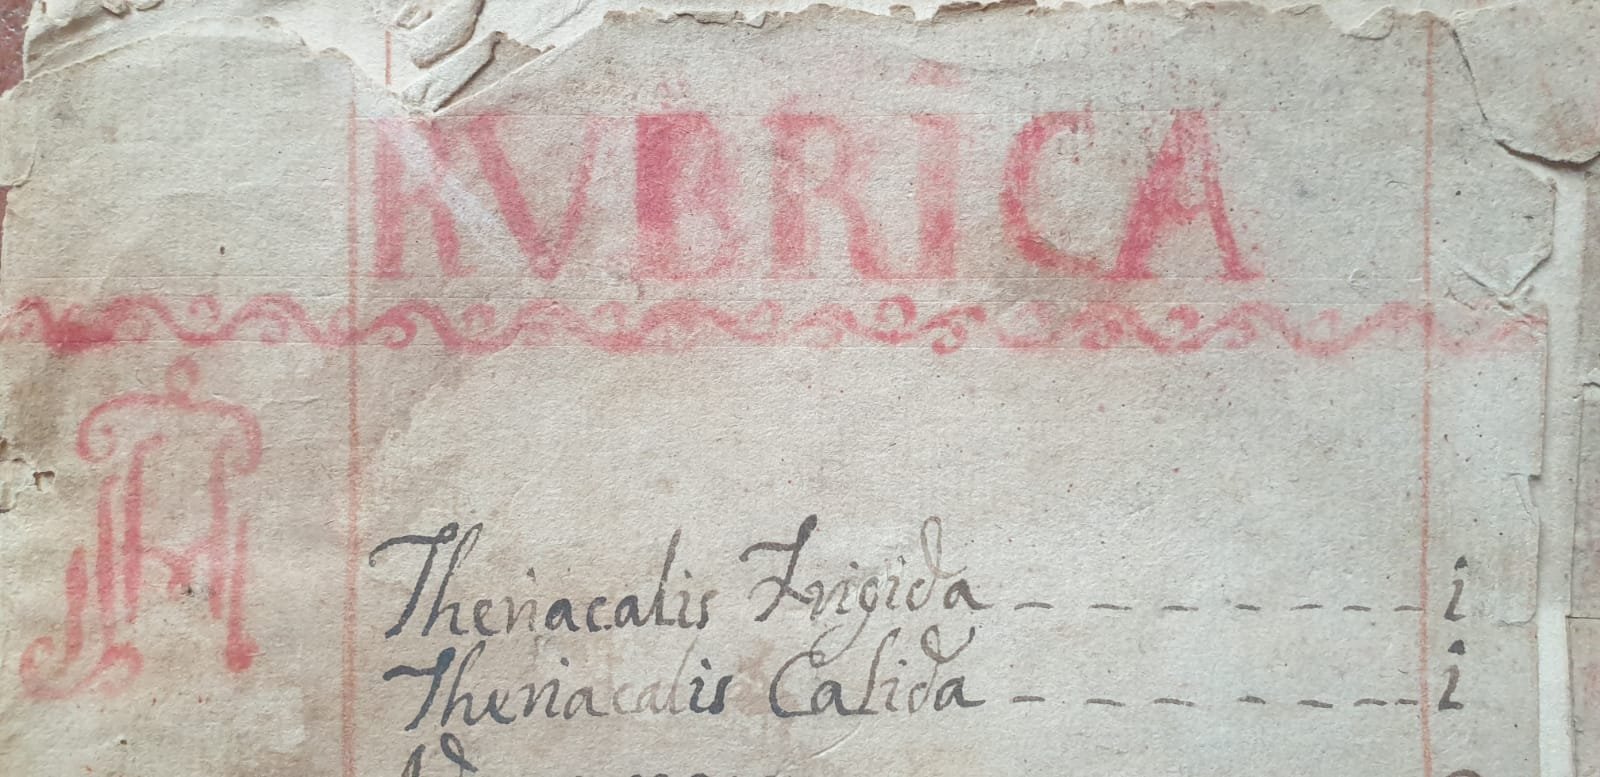 RVBRICA
A
Theriacalis Frigida - - - - - - - - i
Theriacalis Calida - - - - - - - - i